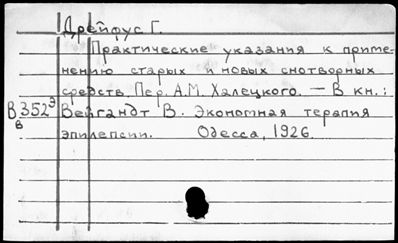 Дрейфус Г.
Практические указания к приме-
нению старых и новых снотворных
средств. Пер. А.М. Халецкого. — В кн.:
В352э
в
Вейгандт В. Экономная терапия
эпилепсии. Одесса, 1926.